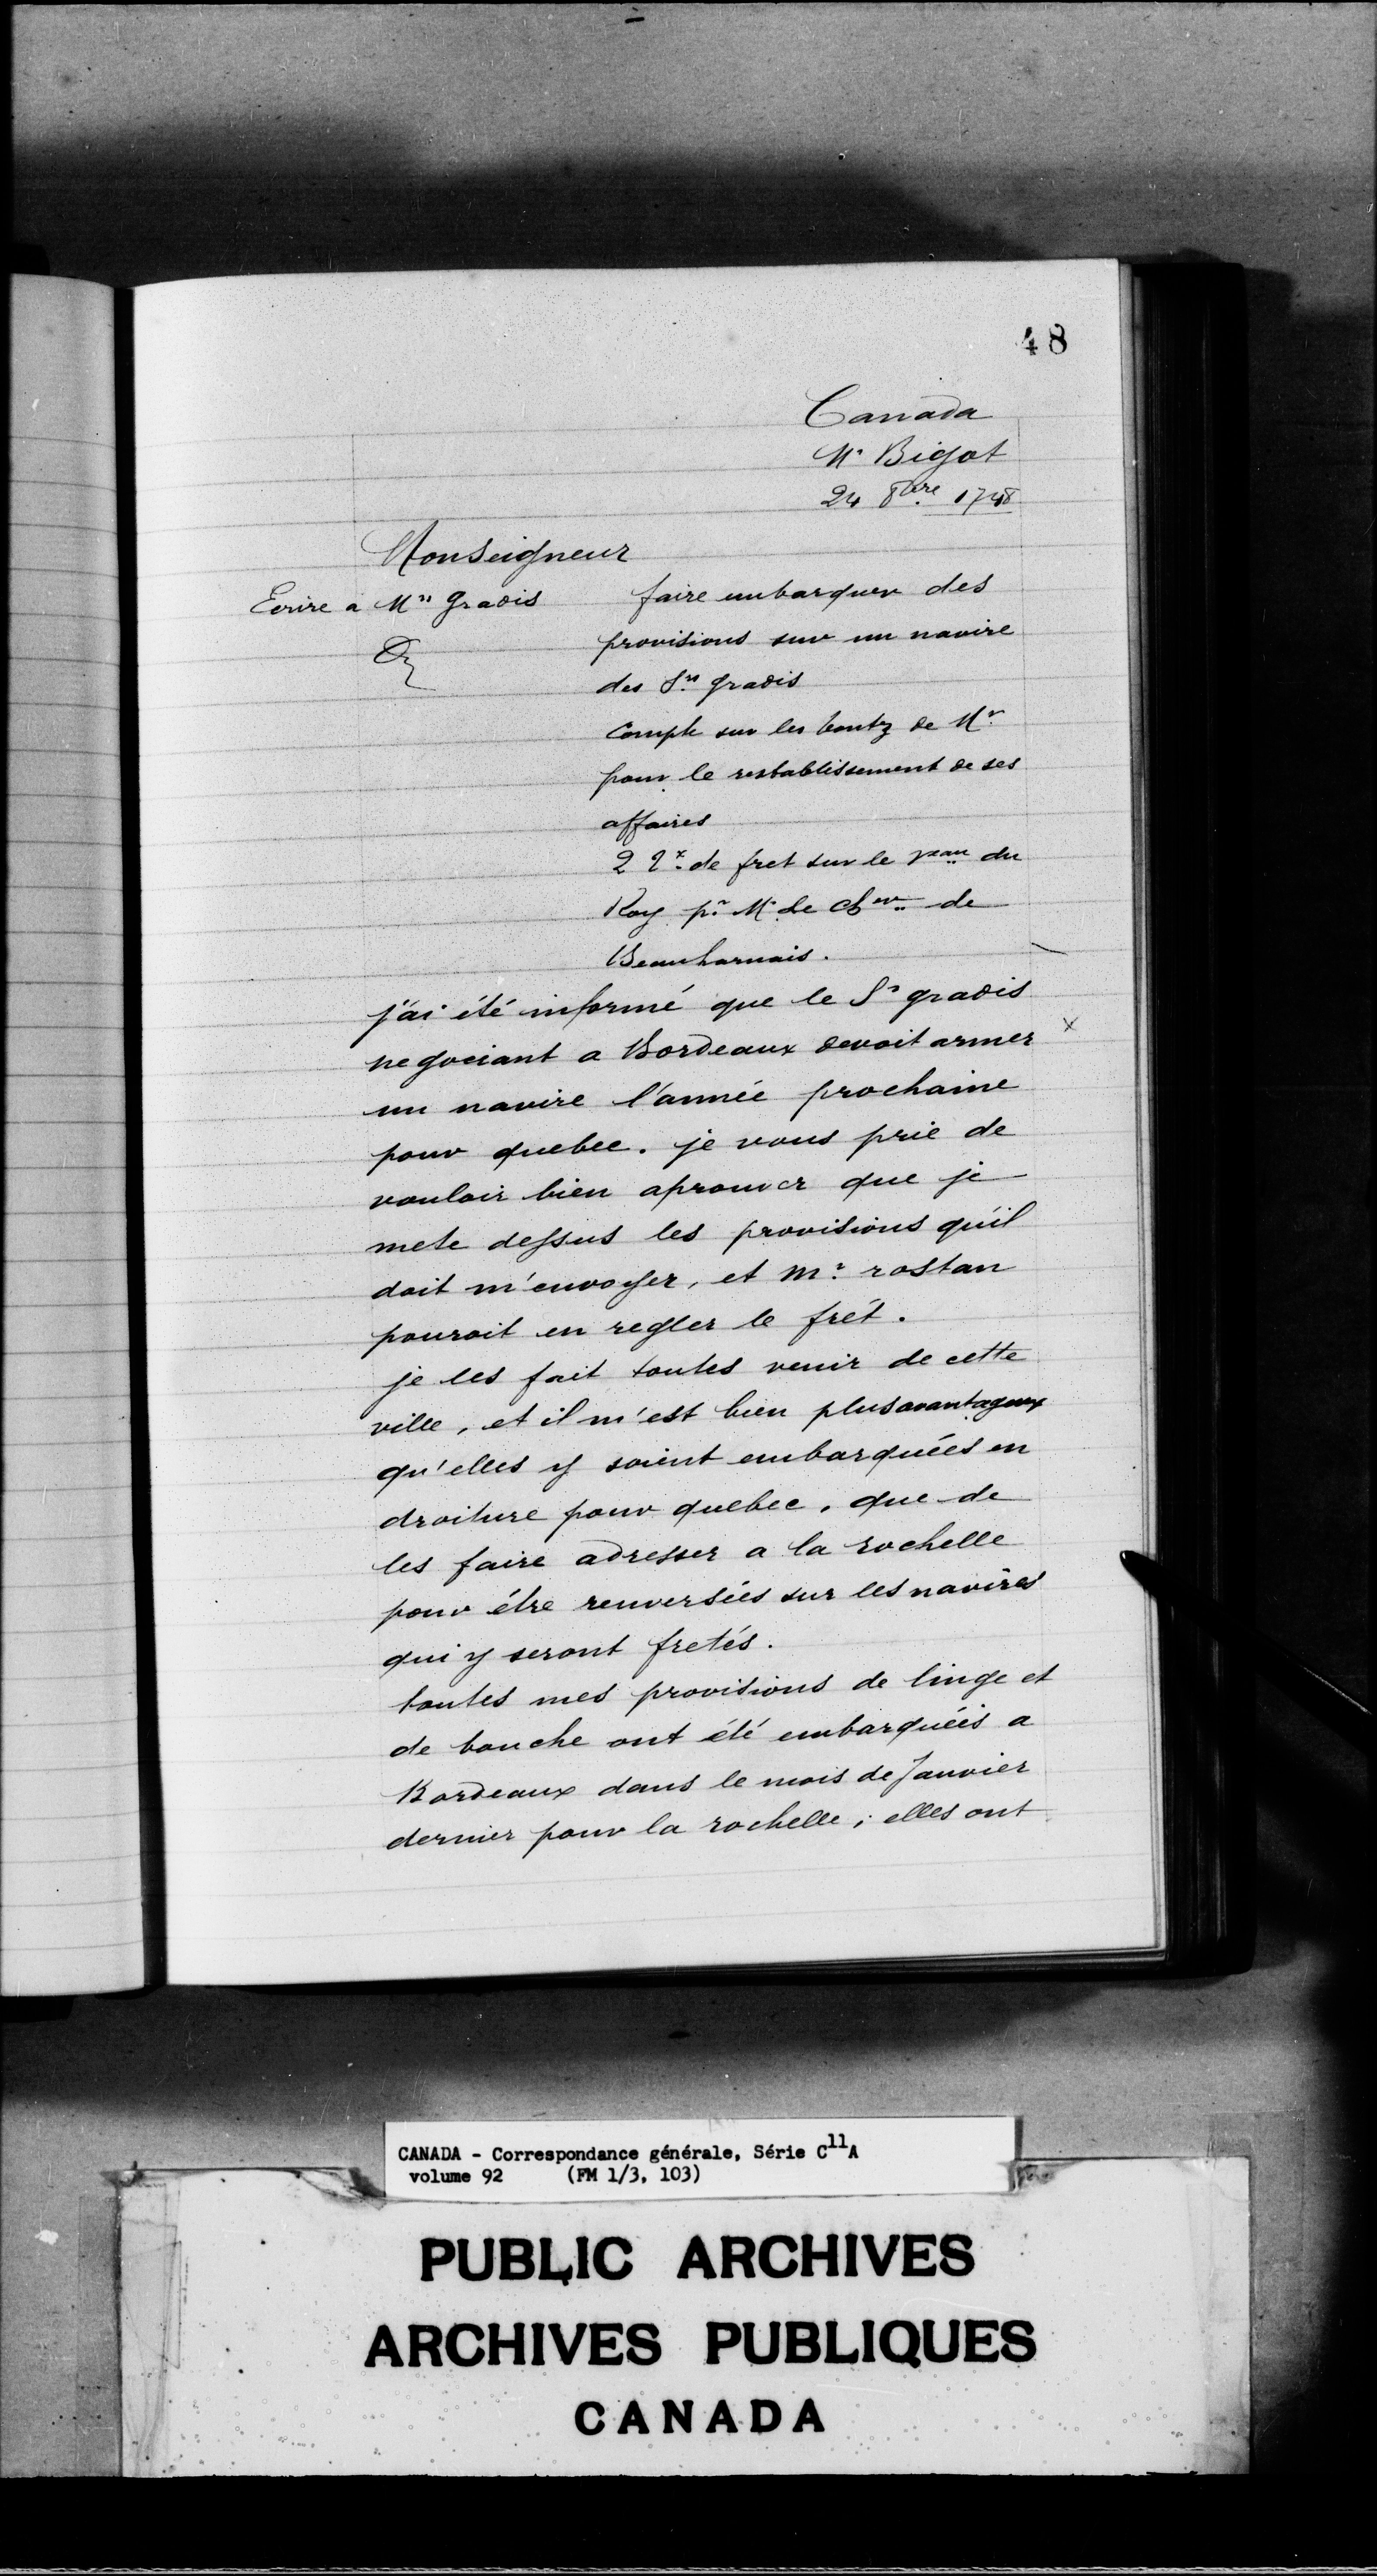 48
Canada
Mr Bigot
24 8bre 1748
Monseigneur
Ecrire a Mrs Gradis
faire embarquer des
provisions sur un navire
des Srs gradis
Compte sur les bontez de Mr
pour le restablissement de ses
affaires
2 Tx de fret sur le veau du
Roy pr Mr le Cher de
Beauharnais.
j'ai été informé que le Sr gradis
negociant a Bordeaux devoit armer
un navire l'année prochaine
pour quebec. je vous prie de
vouloir bien aprouver que je
mete dessus les provisions qu'il
doit m'envoyer, et Mr rostan
pouroit en regler le frét.
je les fait toutes venir de cette
ville, et il m'est bien plus avantageux
qu'elles y soient embarquées en
droiture pour quebec, que de
les faire adresser a la rochelle
pour étre renversées sur les navires
qui y seront fretés.
toutes mes provisions de linge et
de bouche ont été embarquées a
Bordeaux dans le mois de Janvier
dernier pour la rochelle; elles ont
CANADA - Correspondance générale, Série C11A
volume 92 (FM 1/3, 103)
PUBLIC ARCHIVES
ARCHIVES PUBLIQUES
CANADA